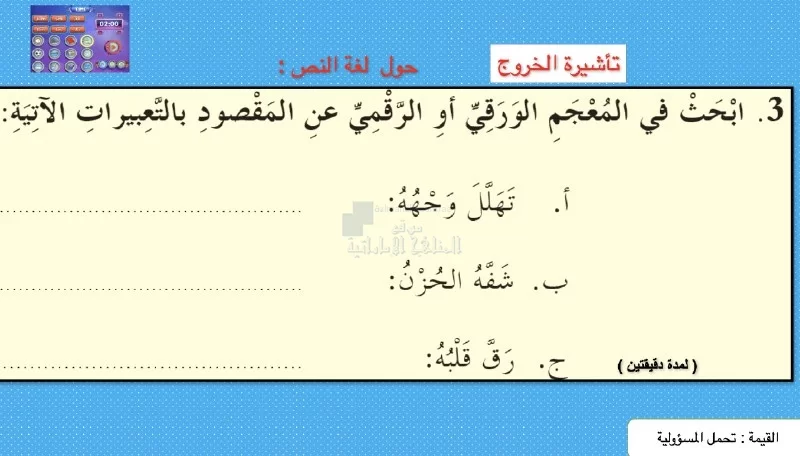 02:00
تأشيرة الخروج
حول لغة النص :
3. ابْحَثْ في المُعْجَمِ الوَرَقِيِّ أوِ الرَّقْمِيِّ عنِ المَقْصودِ بالتَّعبيراتِ الآتِيَةِ:
أ. تَهَلَّلَ وَجْهُهُ: ........................................
موقع
المناهج الإماراتية
ب. شَفَّهُ الحُزْنُ: ........................................
ج. رَقَّ قَلْبُهُ: ........................................
( لمدة دقيقتين )
القيمة : تحمل المسؤولية